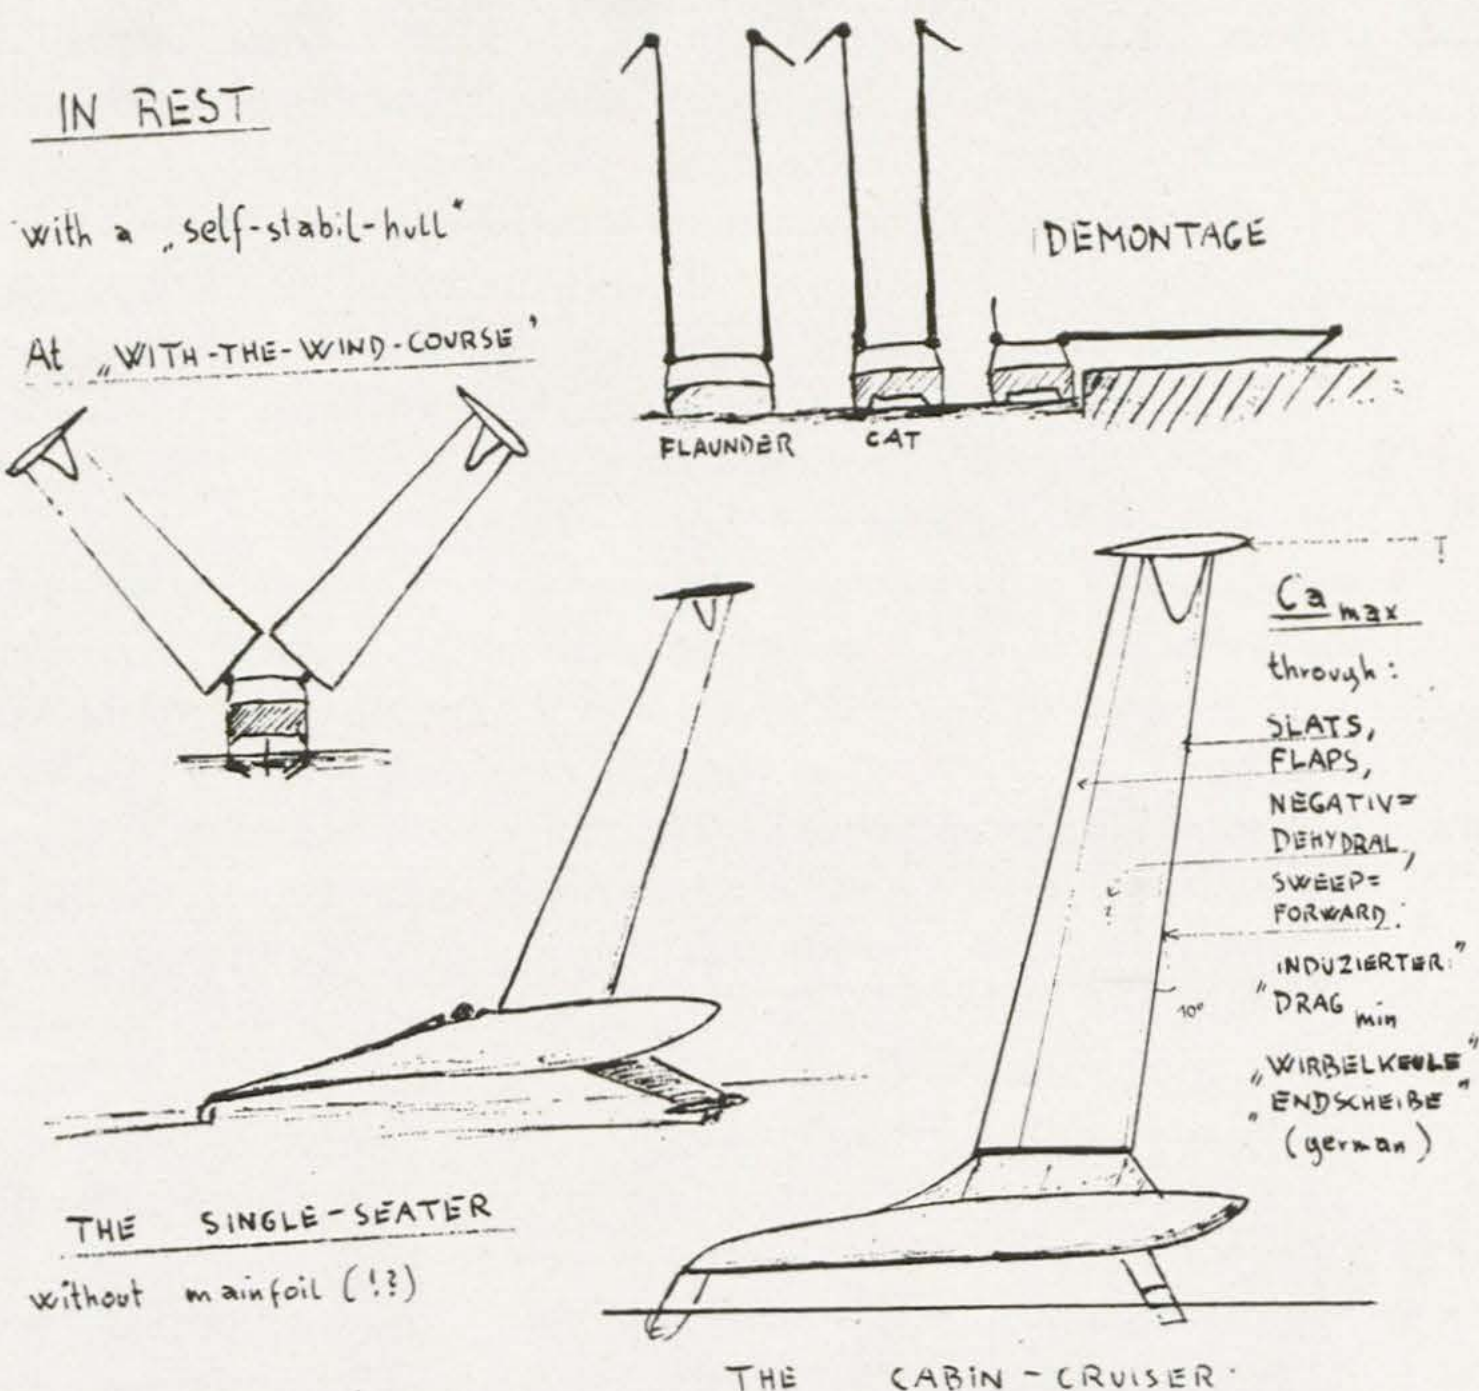 IN REST
with a „self-stabil-hull"
At „WITH-THE-WIND-COURSE'
DEMONTAGE
FLAUNDER
CAT
Ca max
through:
SLATS,
FLAPS,
NEGATIV=
DEHYDRAL,
SWEEP=
FORWARD:
"INDUZIERTER"
"DRAG min
10°
„WIRBELKEULE"
„ENDSCHEIBE"
(german)
THE SINGLE-SEATER
without mainfoil (!?)
THE CABIN-CRUISER.